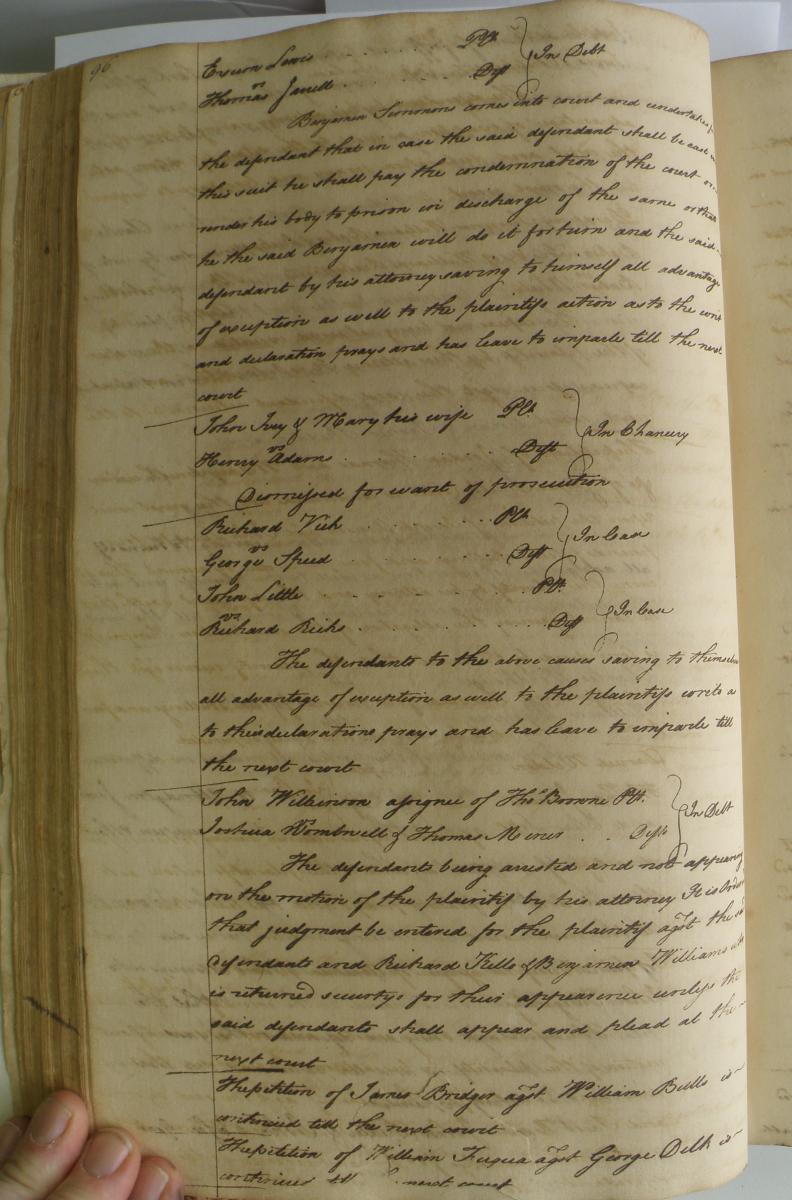 96
Exum Lewis . . . . . Plt
vs In Debt
Thomas Jarrell . . . . . Deft
Benjamin Simmons comes into court and undertakes for
the defendant that in case the said defendant shall be cast in
this suit he shall pay the condemnation of the court or
render his body to prison in discharge of the same or that
he the said Benjamin will do it for him and the said
defendant by his attorney saving to himself all advantage
of exception as well to the plaintifs action as to the writ
and declaration prays and has leave to imparle till the next
court
John Ivey & Mary his wife Plt
vs In Chancery
Henry Adams . . . . . Deft
Dismissed for want of prosecution
Richard Vick . . . . . Plt
vs In Case
George Speed . . . . . Deft
John Little . . . . . Plt
vs In Case
Richard Ricks . . . . . Deft
The defendants to the above causes saving to themselves
all advantage of exception as well to the plaintifs writs as
to their declarations prays and has leave to imparle till
the next court
John Wilkinson assignee of Thos Browne Plt.
vs In Debt
Joshua Wombwell & Thomas Miner . . Defts
The defendants being arrested and not appearing
on the motion of the plaintif by his attorney It is Ordered
that judgment be entered for the plaintif agst the sd
defendants and Richard Kello & Benjamin Williams who
is returned securitys for their appearence unless the
said defendants shall appear and plead at the
next court
The petition of James Bridger agst William Bulls is
continued till the next court
The petition of William Fuqua agst George Delk is
continued till next court